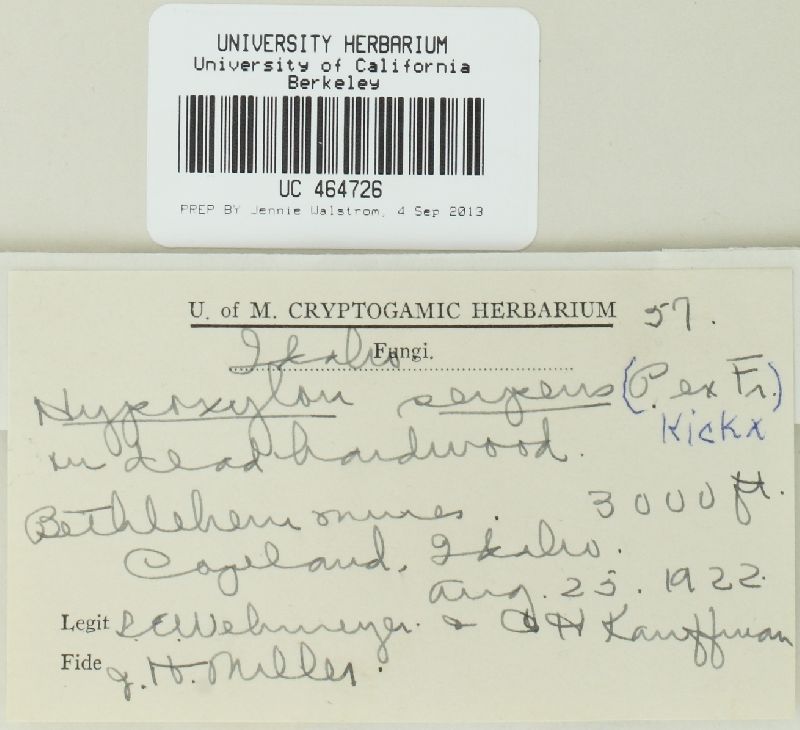 UNIVERSITY HERBARIUM
University of California
Berkeley
UC 464726
PREP BY Jennie Walstrom, 4 Sep 2013
U. of M. CRYPTOGAMIC HERBARIUM 57.
Idaho
Fungi.
Hypoxylon serpens (P. ex Fr.)
Kickx
on dead hardwood.
Bethlehem mines. 3000 ft.
Copeland, Idaho.
Aug. 25. 1922.
Legit L.E. Wehmeyer. & C H Kauffman
Fide J. H. Miller.